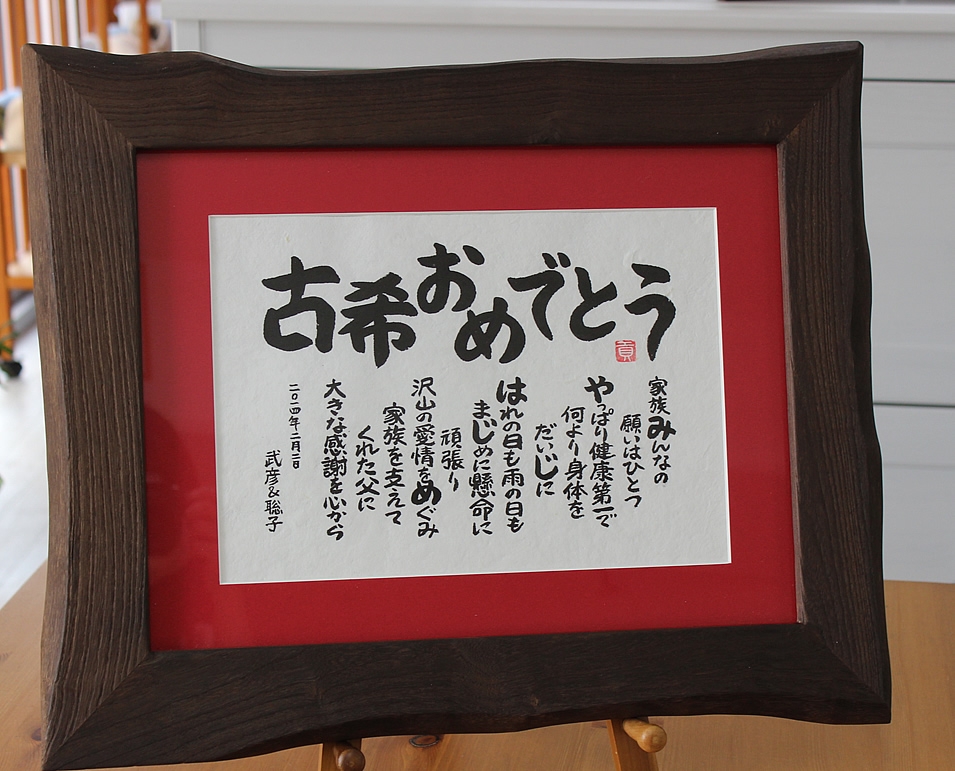 古希おめでとう
貢
家族みんなの
願いはひとつ
やっぱり健康第一で
何より身体を
だいじに
はれの日も雨の日も
まじめに懸命に
頑張り
沢山の愛情をめぐみ
家族を支えて
くれた父に
大きな感謝を心から
二〇一四年二月二日
武彦&聡子